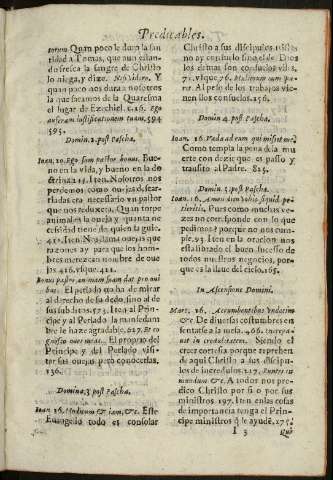 Predicables.
torum. Quan poco le dura la san
tidad a Tomas, que aun estan
do fresca la sangre de Christo
lo niega, y dize. Nisi videro. Y
quan poco nos dura a nosotros
la que sacamos de la Quaresma
el lugar de Ezechiel. c.16. Ego
auferam iustificationem tuam. 594
595.
Domin. 2. post Pascha.
Ioan. 10. Ego sum pastor bonus. Bue-
no en la vida, y bueno en la do
ctrina. Iten. Nosotros nos
perdemos como ouejas desca-
rriadas, era necessario vn pastor
que nos reduxera. Quan torpe
animal es la oueja y quanta ne
cessidad tiene de quien la guie.
Iten. llama ouejas que
razones ay para que los hom-
bres merezcan nombre de oue
jas 416. vsque. 421.
Bonus pastor animam suam dat pro oui
bus. El Perlado no ha de mirar
al derecho de su dedo, sino al de
sus subditos. 573. Iten al Prin-
cipe y al Perlado la mansedum
bre le haze agradable. 617. Et co
gnosco oues meas. El proprio del
Principe y del Perlado visi-
tar sus ouejas, pero conocerlas.
136.
Domina. 3. post Pascha.
Ioan. 16. Modicum & iam, &c. Este
Euangelio todo es consolar
Christo a sus discipulos tristes
no ay consuelo sino el de Dios
los demas son consuelos vidua.
71. vsque 76. Mulierum cum pa-
rit. Al peso de los trabajos vie-
nen los consuelos. 256.
Domin. 4. post Pascha.
Ioan. 16. Vado ad eum qui misit me.
Como templa la pena de la mu
erte con dezir que es passo y
transito al Padre. 815.
Domin. 5. post Pascha.
Ioan. 16. Amen dico vobis si quid pe-
tieritis. Pues como muchas ve-
zes no corresponde con lo que
pedimos? porque no nos cum-
ple, y si. Iten en la oracion nos
esta librado el buen sucesso de
todos nuestros negocios, por-
que es la llaue del cielo. 165.
In Ascensione Domini.
Marc. 16. Recumbentibus Vndecim
&c. De diuersas costumbres en
sentarse a la mesa. 466. Increpa-
uit incredulitatem. Siendo el
creer cortesia porque reprehen
de aqui Christo a sus discipu-
los de incredulos. 217. Euntes in
mundum &c. A todos nos pre-
dico Christo por si o por sus
ministros. 197. Iten en las cosas
de importancia tenga el Prin-
cipe ministros que le ayuden. 175.
I 3
Que